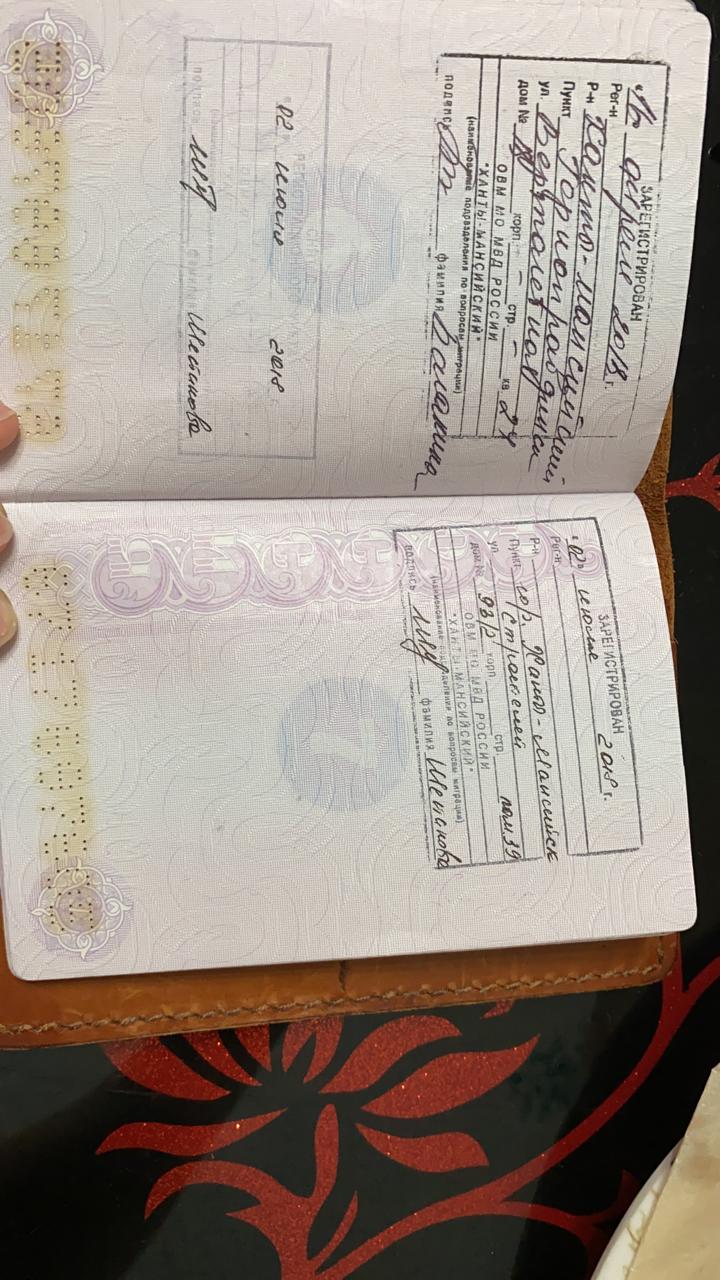 ЗАРЕГИСТРИРОВАН
апреля 2018 г.
Рег-н
Р-н Ханты-Мансийский
Пункт Горноправдинск
ул. Вертолетная
дом № корп. - стр. - кв. 24
ОВМ МО МВД РОССИИ
"ХАНТЫ-МАНСИЙСКИЙ"
(наименование подразделения по вопросам миграции)
подпись фамилия
СНЯТ С
РЕГИСТРАЦИОННОГО
02 июля 2018
подпись фамилия
6
ЗАРЕГИСТРИРОВАН
"02" июля 2018 г.
Рег-н
Р-н
Пункт гор. Ханты-Мансийск
ул. Строителей
дом № 93/2 корп. стр. пом. 39
ОВМ МО МВД РОССИИ
"ХАНТЫ-МАНСИЙСКИЙ"
(наименование подразделения по вопросам миграции)
подпись фамилия
7